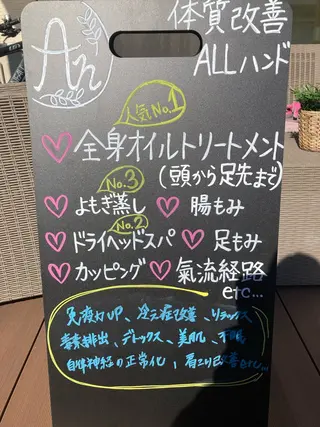 An
体質改善
ALLハンド
人気No.1
全身オイルトリートメント
(頭から足先まで)
No.3
よもぎ蒸し 腸もみ
No.2
ドライヘッドスパ 足もみ
カッピング 氣流経路
etc...
免疫力UP、冷え症改善、リラックス
毒素排出、デトックス、美肌、不眠
自律神経の正常化、肩こり改善etc...